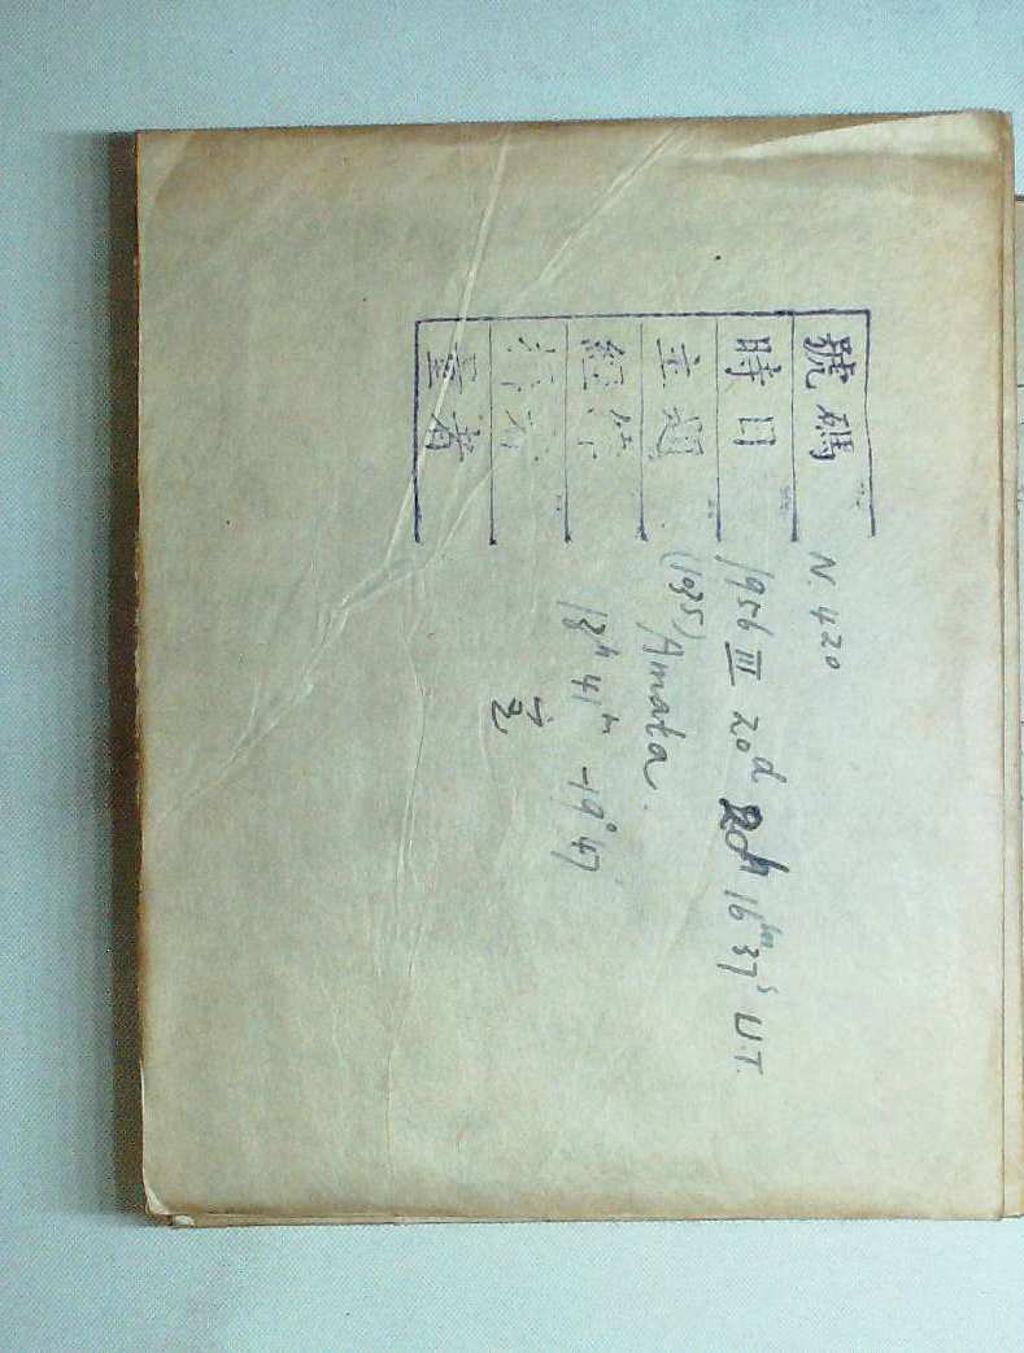 號碼 N. 420
時日 1956 III 20d 20h 16m 37s U.T.
主題 (1035) Amata.
13h 41m -19° 47'
量者